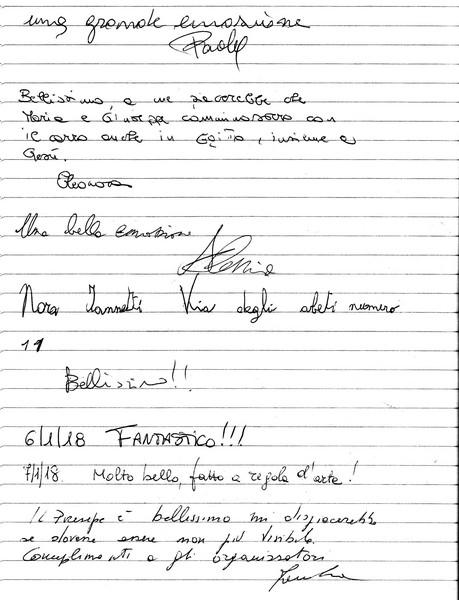 una grande emozione
Paola
Bellissimo, a me piacerebbe che
Maria e Giuseppe camminassero con
il carro anche in Egitto, insieme a
Gesù.
Eleonora
Una bella emozione
Nora Iannetti Via degli abeti numero
11
Bellissimo!!
6/1/18 FANTASTICO!!!
7/1/18. Molto bello, fatto a regola d'arte!
Il Presepe è bellissimo mi dispiacerebbe
se dovesse essere non più visibile.
Complimenti a gli organizzatori